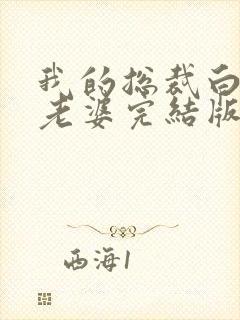 我的总裁白
老婆完结版
西海1